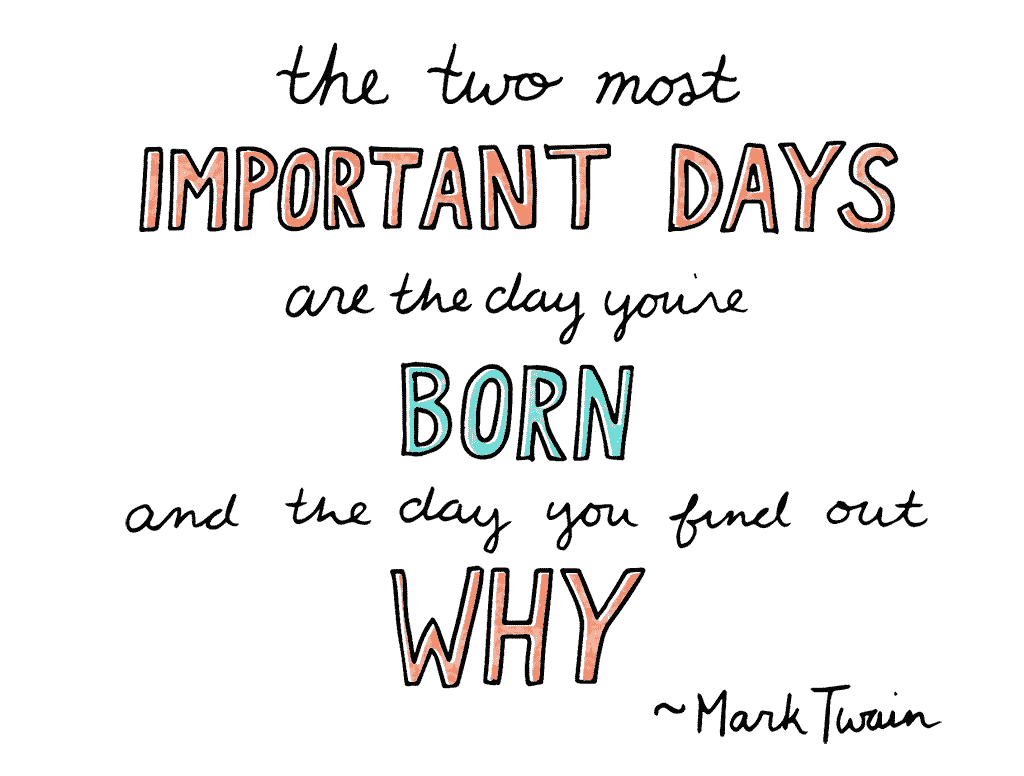 the two most
IMPORTANT DAYS
are the day you're
BORN
and the day you find out
WHY
~Mark Twain